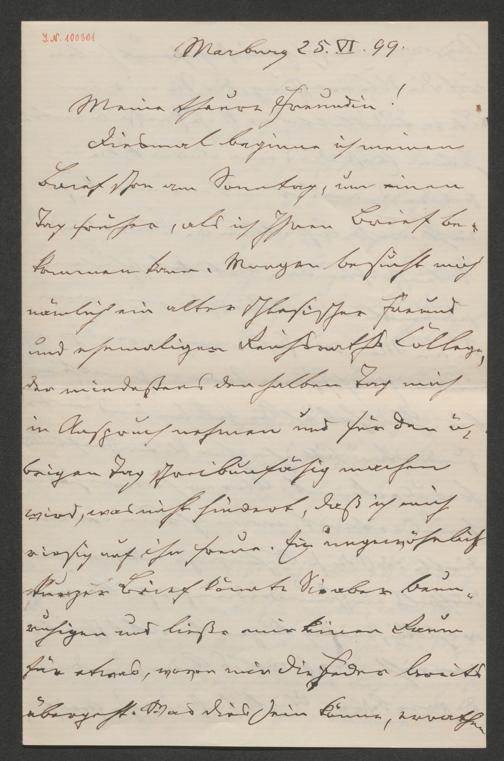 J.N. 100301
Marburg 25. VI. 99.
Meine theure Freundin!
Diesmal beginne ich meinen
Brief schon am Sonntag, um einen
Tag früher, als ich Ihren Brief be-
kommen kann. Morgen besucht mich
nämlich ein alter schlesischer Freund
und ehemaliger Reichsraths College,
der mindestens den halben Tag mich
in Anspruch nehmen und für den ü-
brigen Tag schreibunfähig machen
wird, was nicht hindert, daß ich mich
riesig auf ihn freue. Ein ungewöhnlich
kurzer Brief könnte Sie aber beun-
ruhigen und ließe mir keinen Raum
für etwas, wovon mir die Feder bereits
übergeht. Was dies sein könne, errathen